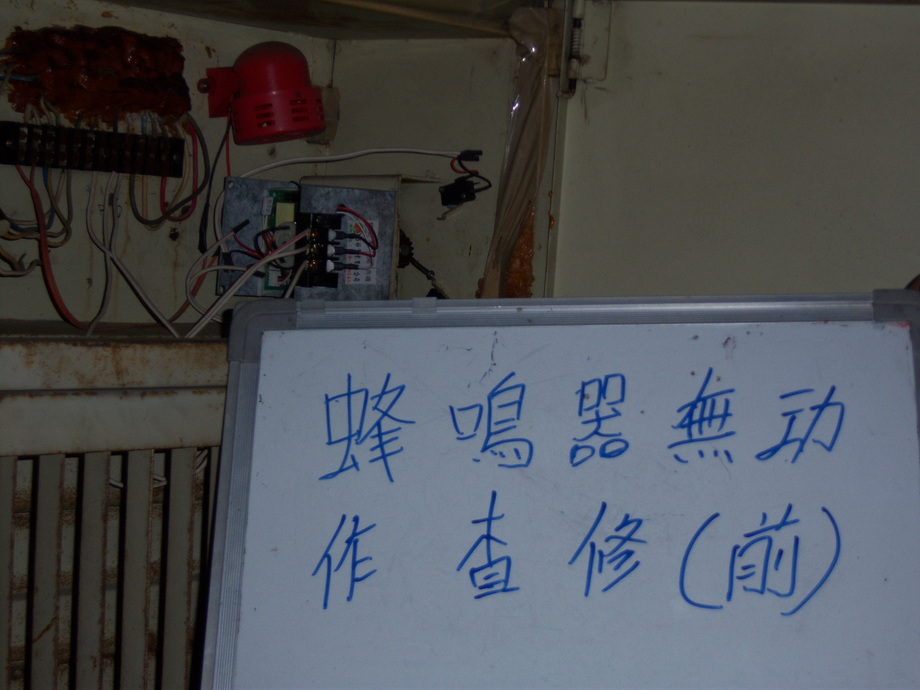 蜂鳴器無动
作查修(前)